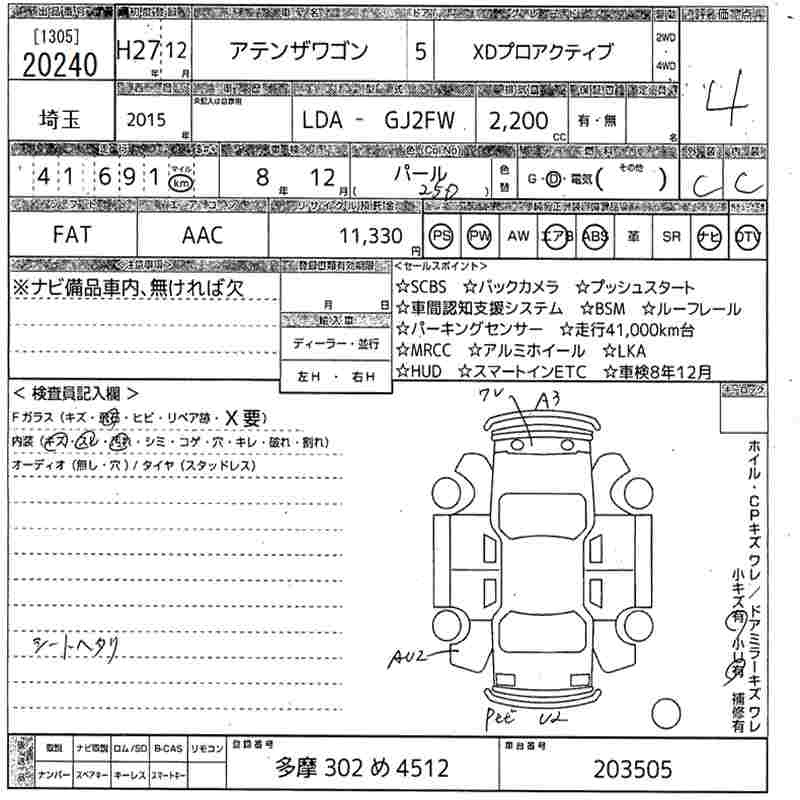 [1305]
20240
H27年 12月
アテンザワゴン
5
XDプロアクティブ
2WD
4WD
評価点
4
埼玉
2015 年
LDA - GJ2FW
2,200 CC
有・無
名
41691
マイル
km
車検
8年 12月
色(Col No)
パール
( 25D )
色替
燃料
G・D・電気( その他 )
外装
C
内装
C
シフト
FAT
エアコン
AAC
リサイクル預託金
11,330円
PS
PW
AW
エアB
ABS
革
SR
ナビ
DTV
注意事項
※ナビ備品車内、無ければ欠
登録書類有効期限
月 日
輸入車
ディーラー・並行
左H ・ 右H
<セールスポイント>
☆SCBS ☆バックカメラ ☆プッシュスタート
☆車間認知支援システム ☆BSM ☆ルーフレール
☆パーキングセンサー ☆走行41,000km台
☆MRCC ☆アルミホイール ☆LKA
☆HUD ☆スマートインETC ☆車検8年12月
< 検査員記入欄 >
Fガラス(キズ・飛石・ヒビ・リペア跡・X要)
内装(キズ・スレ・汚れ・シミ・コゲ・穴・キレ・破れ・割れ)
オーディオ(無し・穴)/タイヤ(スタッドレス)
シートヘタリ
ワレ
A3
AU2
U2
ホイル・CPキズワレ/ドアミラーキズワレ
小キズ有 小U有 補修有
後送品
取説
ナビ取説
ロム/SD
B-CAS
リモコン
ナンバー
スペアキー
キーレス
スマートキー
登録番号
多摩 302 め 4512
車台番号
203505